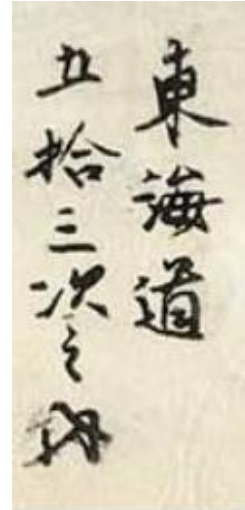 東海道
五拾三次之内